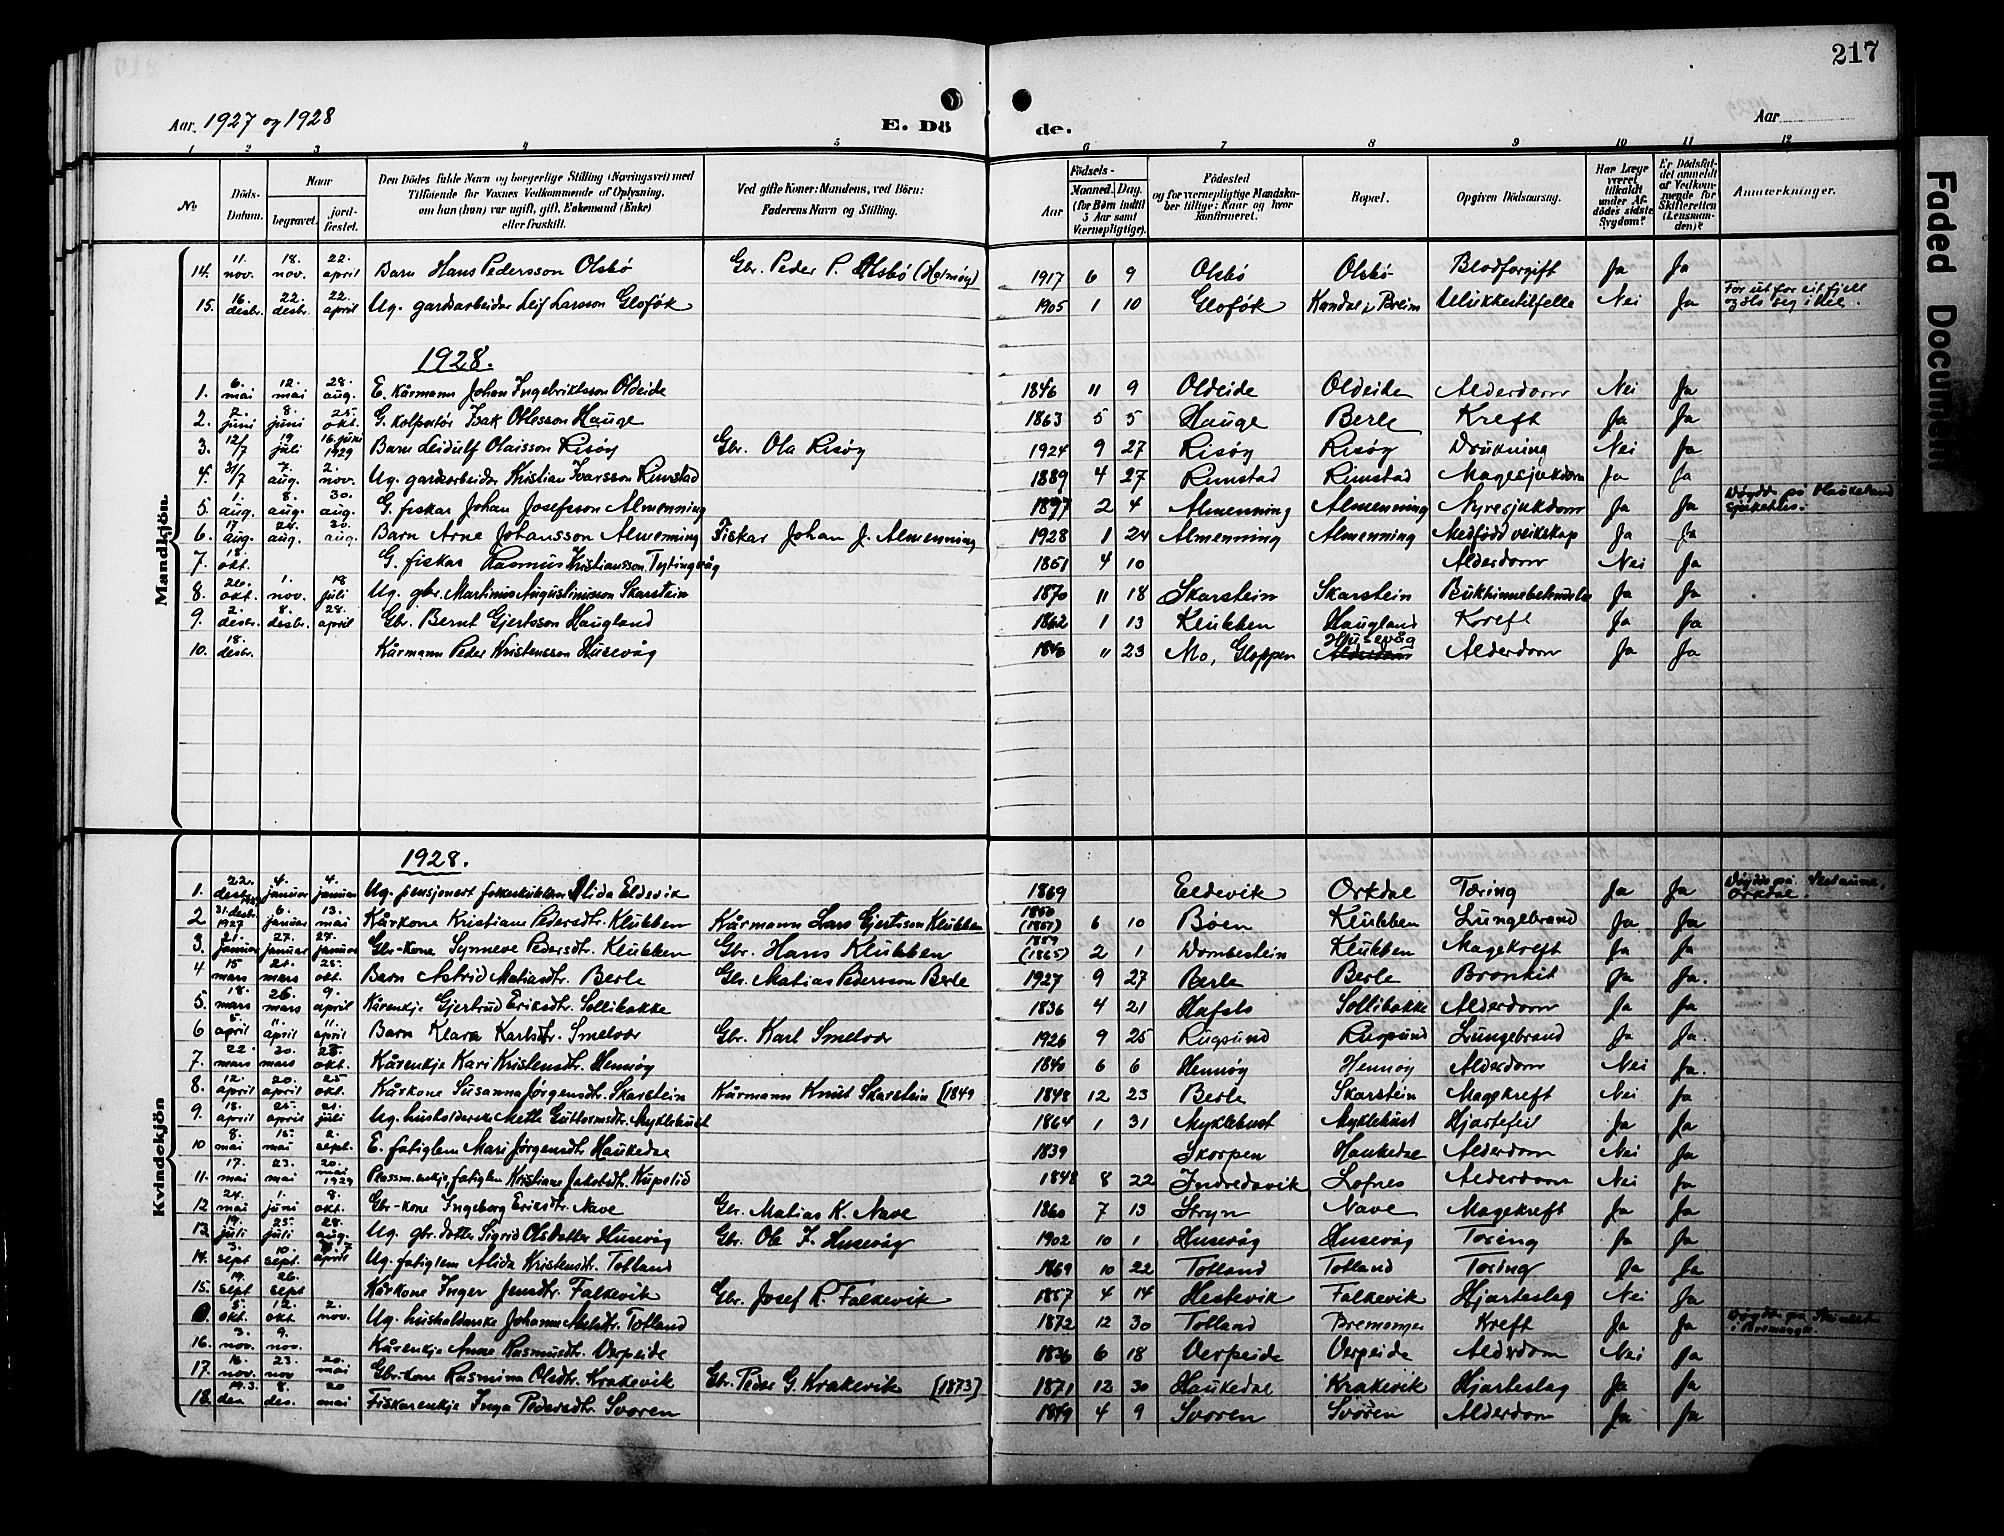 217
Aar 1927 og 1928
E. Dö de.
Aar
1 2 3 4 5 6 7 8 9 10 11 12
№
Döds-Datum.
Naar
begravet.
jord-fæstet.
Den Dödes fulde Navn og borgerlige Stilling (Næringsvei) med
Tilföiende for Voxnes Vedkommende af Oplysning,
om han (hun) var ugift, gift, Enkemand (Enke)
eller fraskilt.
Ved gifte Koner: Mandens, ved Börn:
Faderens Navn og Stilling.
Födsels-
Aar
Maaned. Dag.
(for Börn indtil
5 Aar samt
Værnepligtige).
Födested
og for værnepligtige Mandska-
ber tillige: Naar og hvor
konfirmeret.
Bopæl.
Opgiven Dödsaarsag.
Har Læge
været
tilkaldt
under Af-
dödes sidste
Sygdom?
Er Dödsfal-
det anmeldt
af Vedkom-
mende for
Skifteretten
(Lensman-
den)?
Anmærkninger.
Mandkjön
14. 11. nov. 18. nov. 22. april Barn Hans Pedersson Olsbö Gbr. Peder P. Olsbö 1917 6 9 Olsbö Olsbö Blodforgift Ja Ja
15. 16. desbr. 22. desbr. 22. april Ug. gardsarbeider Leif Larsson Glofök 1905 1 10 Glofök Kandal i Breim Ulukkestilfelle Nei Ja For ut for eit fjell og slo seg ihel.
1928.
1. 6. mai 12. mai 28. aug. E. kårmann Johan Ingebriktsson Oldeide 1846 11 9 Oldeide Oldeide Alderdom Nei Ja
2. 2. juni 8. juni 25. okt. G. kolportör Isak Hauge 1863 5 5 Hauge Berle Kreft Ja Ja
3. 12/7 19. juli 16. juni 1929 Barn Leidulf Olaisson Risöy Gbr. Ola Risöy 1924 9 27 Risöy Risöy Drukning Nei Ja
4. 31/7 7. aug. 2. nov. Ug. gardsarbeider Kristian Ivarsson Rimstad 1889 4 27 Rimstad Rimstad Magesjukdom Ja Ja
5. 1. aug. 8. aug. 30. aug. G. fiskar Johan Josefsson Almenning 1897 2 4 Almenning Almenning Nyresjukdom Ja Ja Döydde på Haukeland sjukehus.
6. 17. aug. 24. aug. 30. aug. Barn Arne Johansson Almenning Fiskar Johan J. Almenning 1928 1 24 Almenning Almenning Medfödd veikskap Ja Ja
7. 18. okt. G. fiskar Rasmus Kristiansson Tytingvåg 1851 4 10 Alderdom Nei Ja
8. 26. okt. 1. nov. 18 juli Ug. gbr. Martinus Augustinusson Skarstein 1870 11 18 Skarstein Skarstein Bukhinnebetendelse Ja Ja
9. 2. desbr. 8. desbr. 28. april Gbr. Bernt Gjertsson Haugland 1862 1 13 Klubben Haugland Kreft Ja Ja
10. 18. desbr. Kårmann Peder Kristensson Husevåg " 23 Mo, Gloppen Husevåg Alderdom Ja Ja
Kvindekjön
1928.
1. 22. desbr. 4. januar 4. januar Ug. pensjonert Alida Eldevik 1869 Eldevik Orkdal Tæring Ja Ja Döydde på Orkdal.
2 31. desbr. 1927 6. januar 13. mai Kårkone Kristiane Pedersdtr. Klubben Kårmann Lars Gjertsson Klubben 1850 (1851) 6 10 Böen Klubben Lungebrand Ja Ja
3. 21. januar 27. januar 27. januar Gbr-kone Synneve Pedersdtr. Klubben Gbr. Hans Klubben 1859 (1865) 2 1 Dombestein Klubben Magekreft Ja Ja
4 15 mars 21. mars 25. okt. Barn Astrid Matiasdtr. Berle Gbr. Matias Pedersson Berle 1927 9 27 Berle Berle Bronkit Ja Ja.
5. 18. mars 26. mars 9. april Kårenkje Gjertrud Eriksdtr. Sollibakke 1836 4 21 Hafslo Sollibakke Alderdom Ja Ja
6 5. april 11. april 11. april Barn Klara Karlsdtr. Smelvær Gbr. Karl Smelvær 1926 9 25 Rugsund Rugsund Lungebrand Ja Ja.
7. 22. mars 30. mars 25. okt. Kårenkje Kari Kristensdtr. Hennöy 1840 6 6 Hennöy Hennöy Alderdom Nei Ja.
8. 12. april 20. april 25 okt. Kårkone Susanna Jörgensdtr. Skarstein Kårmann Knut Skarstein (1849 1848 12 23 Berle Skarstein Magekreft Nei Ja
9. 18. april 25. april 21. juli Ug. husholderske Mette Guttormsdtr. Myklebust 1864 1 31 Myklebust Myklebust Hjartefeil Ja Ja
10 8. mai 15. mai 2. sept. E. fatiglem Mari Jörgensdtr. Haukedal 1839 Skorpen Haukedal Alderdom Nei Ja
11. 17. mai 23. mai 20. mai 1929 Plassm.enkje, fatiglem Kristiane Jakobsdtr. Kupelid 1848 8 22 Indredavik Lofnes Alderdom Nei Ja
12 24. mai 1. juni 8. okt. Gbr-kone Ingeborg Eriksdtr. Nave Gbr. Matias K. Nave 1860 7 13 Stryn Nave Magekreft Ja Ja
13. 19. juli 25. juli 28. aug. Ug. gbr. dotter Sigrid Olsdotter Husevåg Gbr. Ole J. Husevåg 1902 10 1 Husevåg Husevåg Tæring Ja Ja
14. 3. sept 10. sept. april Ug. fatiglem Alida Kristensdtr. Totland 1869 10 22 Totland Totland Tæring Ja Ja
15. 19. sept 26. sept Kårkone Inger Jensdtr. Falkevik Gbr. Josef R. Falkevik 1857 4 14 Hestevik Falkevik Hjarteslag Nei Ja
5. okt. 12. okt 2. nov. Ug. husholderske Johanne Totland 1872 12 30 Totland Bremanger Kreft Ja Ja Döydde på i Bremanger.
16. 3. nov. 9. nov. Kårenkje Anne Rasmusdtr. Verpeide 1836 6 18 Verpeide Verpeide Alderdom Nei Ja
17. 16. nov. 23. nov 20. mai Gbr.kone Rasmine Olsdtr. Krakevik Gbr. Peder G. Krakevik (1873) 1871 12 30 Haukedal Krakevik Hjarteslag Ja Ja
18. 8. des. 20 mai Fiskarenkje Inga Pedersdtr. Svoren 1849 4 9 Svoren Svören Alderdom Ja Ja
Faded Document